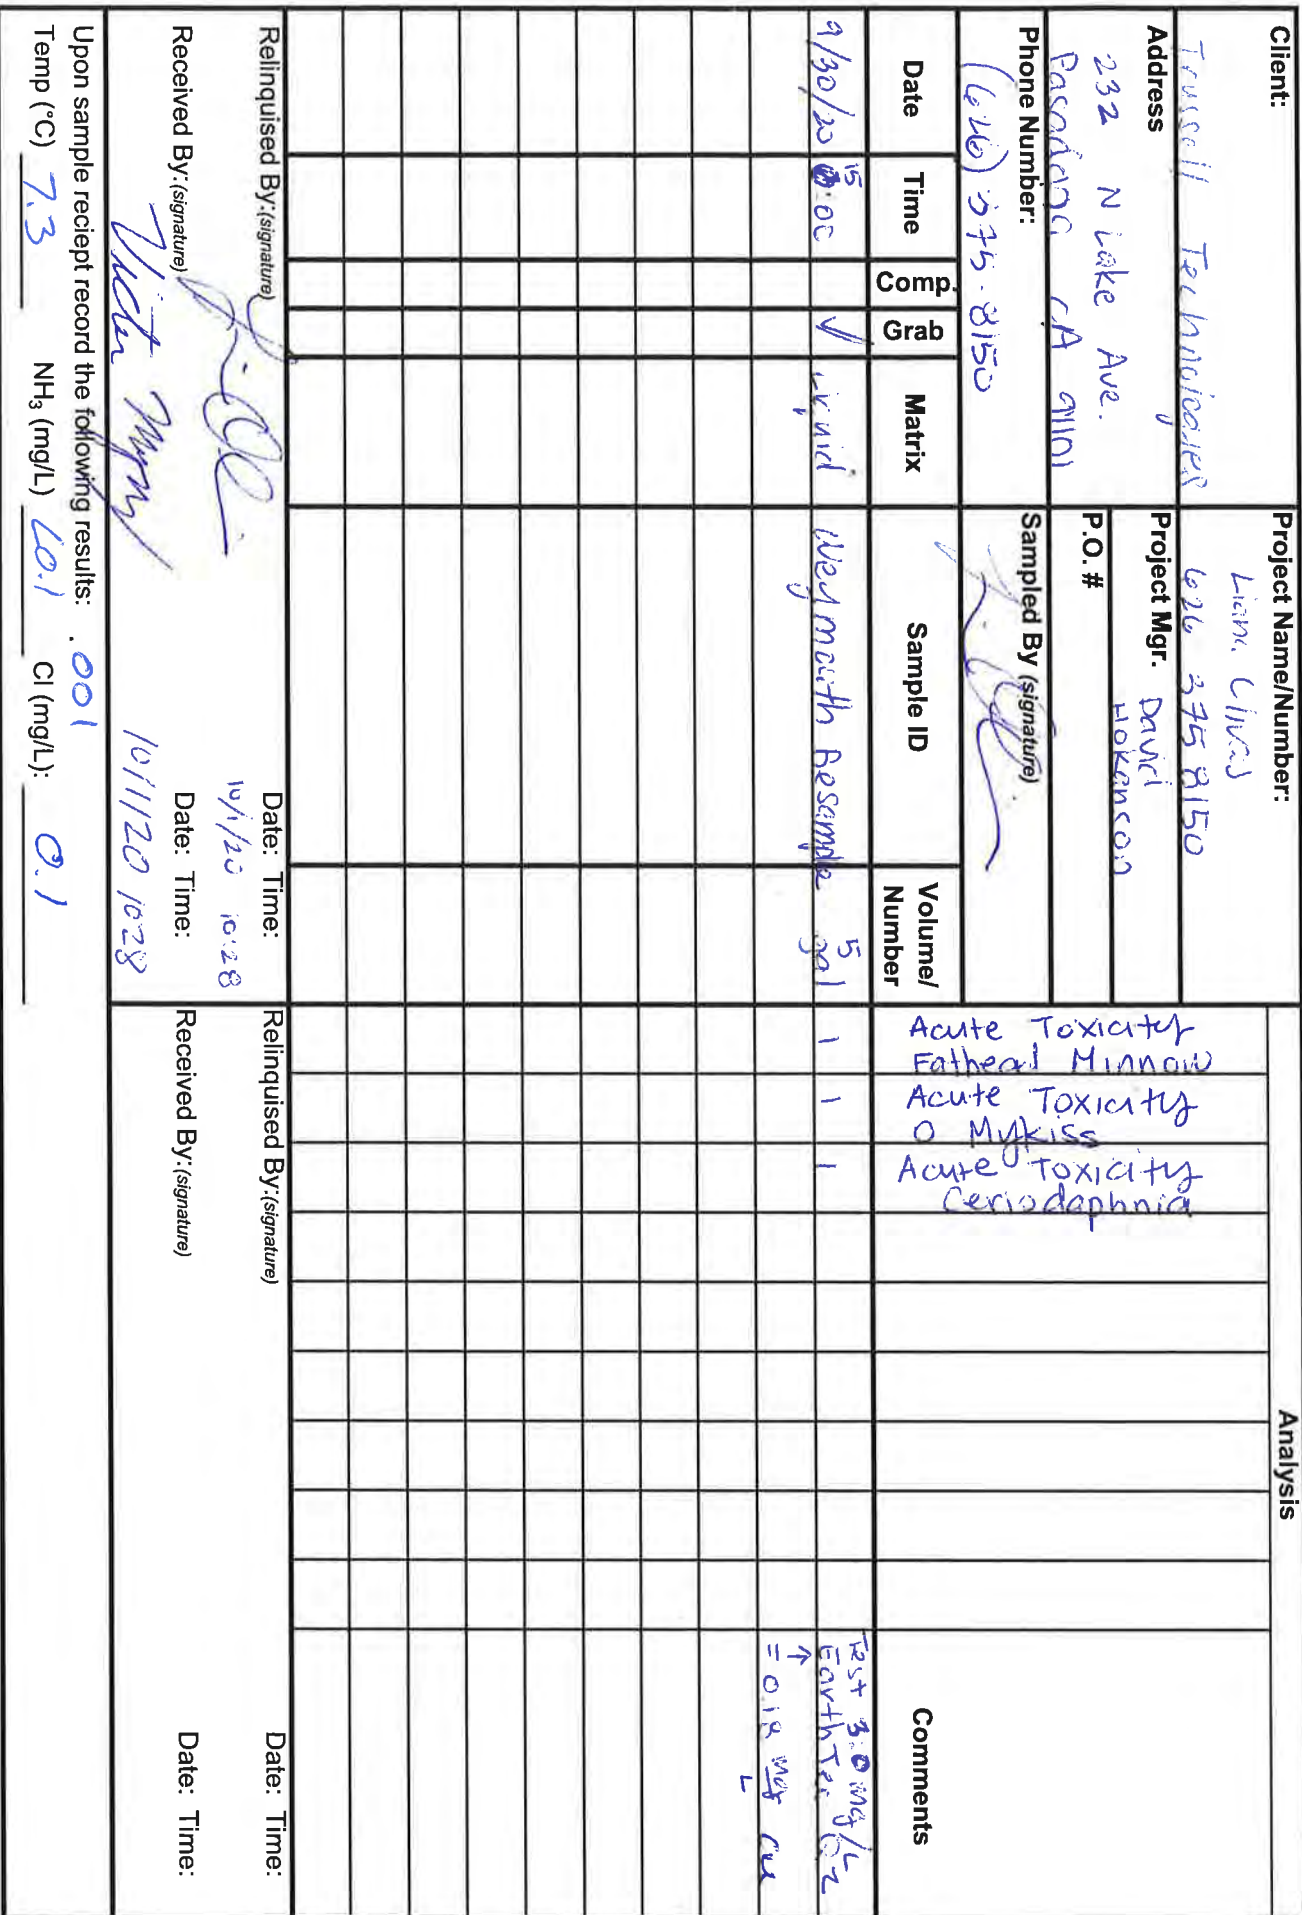 Client:
Trussell Technologies
Address
232 N Lake Ave.
Pasadena CA 91101
Phone Number:
(626) 375-8150
Project Name/Number:
626 375 8150
Project Mgr. David
Hokanson
P.O. #
Sampled By (signature)
Analysis
Date
Time
Comp.
Grab
Matrix
Sample ID
Volume/
Number
Acute Toxicity
Fathead Minnow
Acute Toxicity
O Mykiss
Acute Toxicity
Ceriodaphnia
Comments
9/30/20
15
:00
✓
Liquid
Weymouth Resample
5
gal
1
1
1
Test 3.0 mg/L
EarthTec
↑
= 0.18 mg
L
Cu
Relinquised By:(signature)
Date: Time:
10/1/20 10:28
Received By:(signature)
Victor
Date: Time:
10/1/20 1028
Relinquised By:(signature)
Date: Time:
Received By:(signature)
Date: Time:
Upon sample reciept record the following results: .001
Temp (°C) 7.3
NH₃ (mg/L) <0.1
Cl (mg/L): 0.1